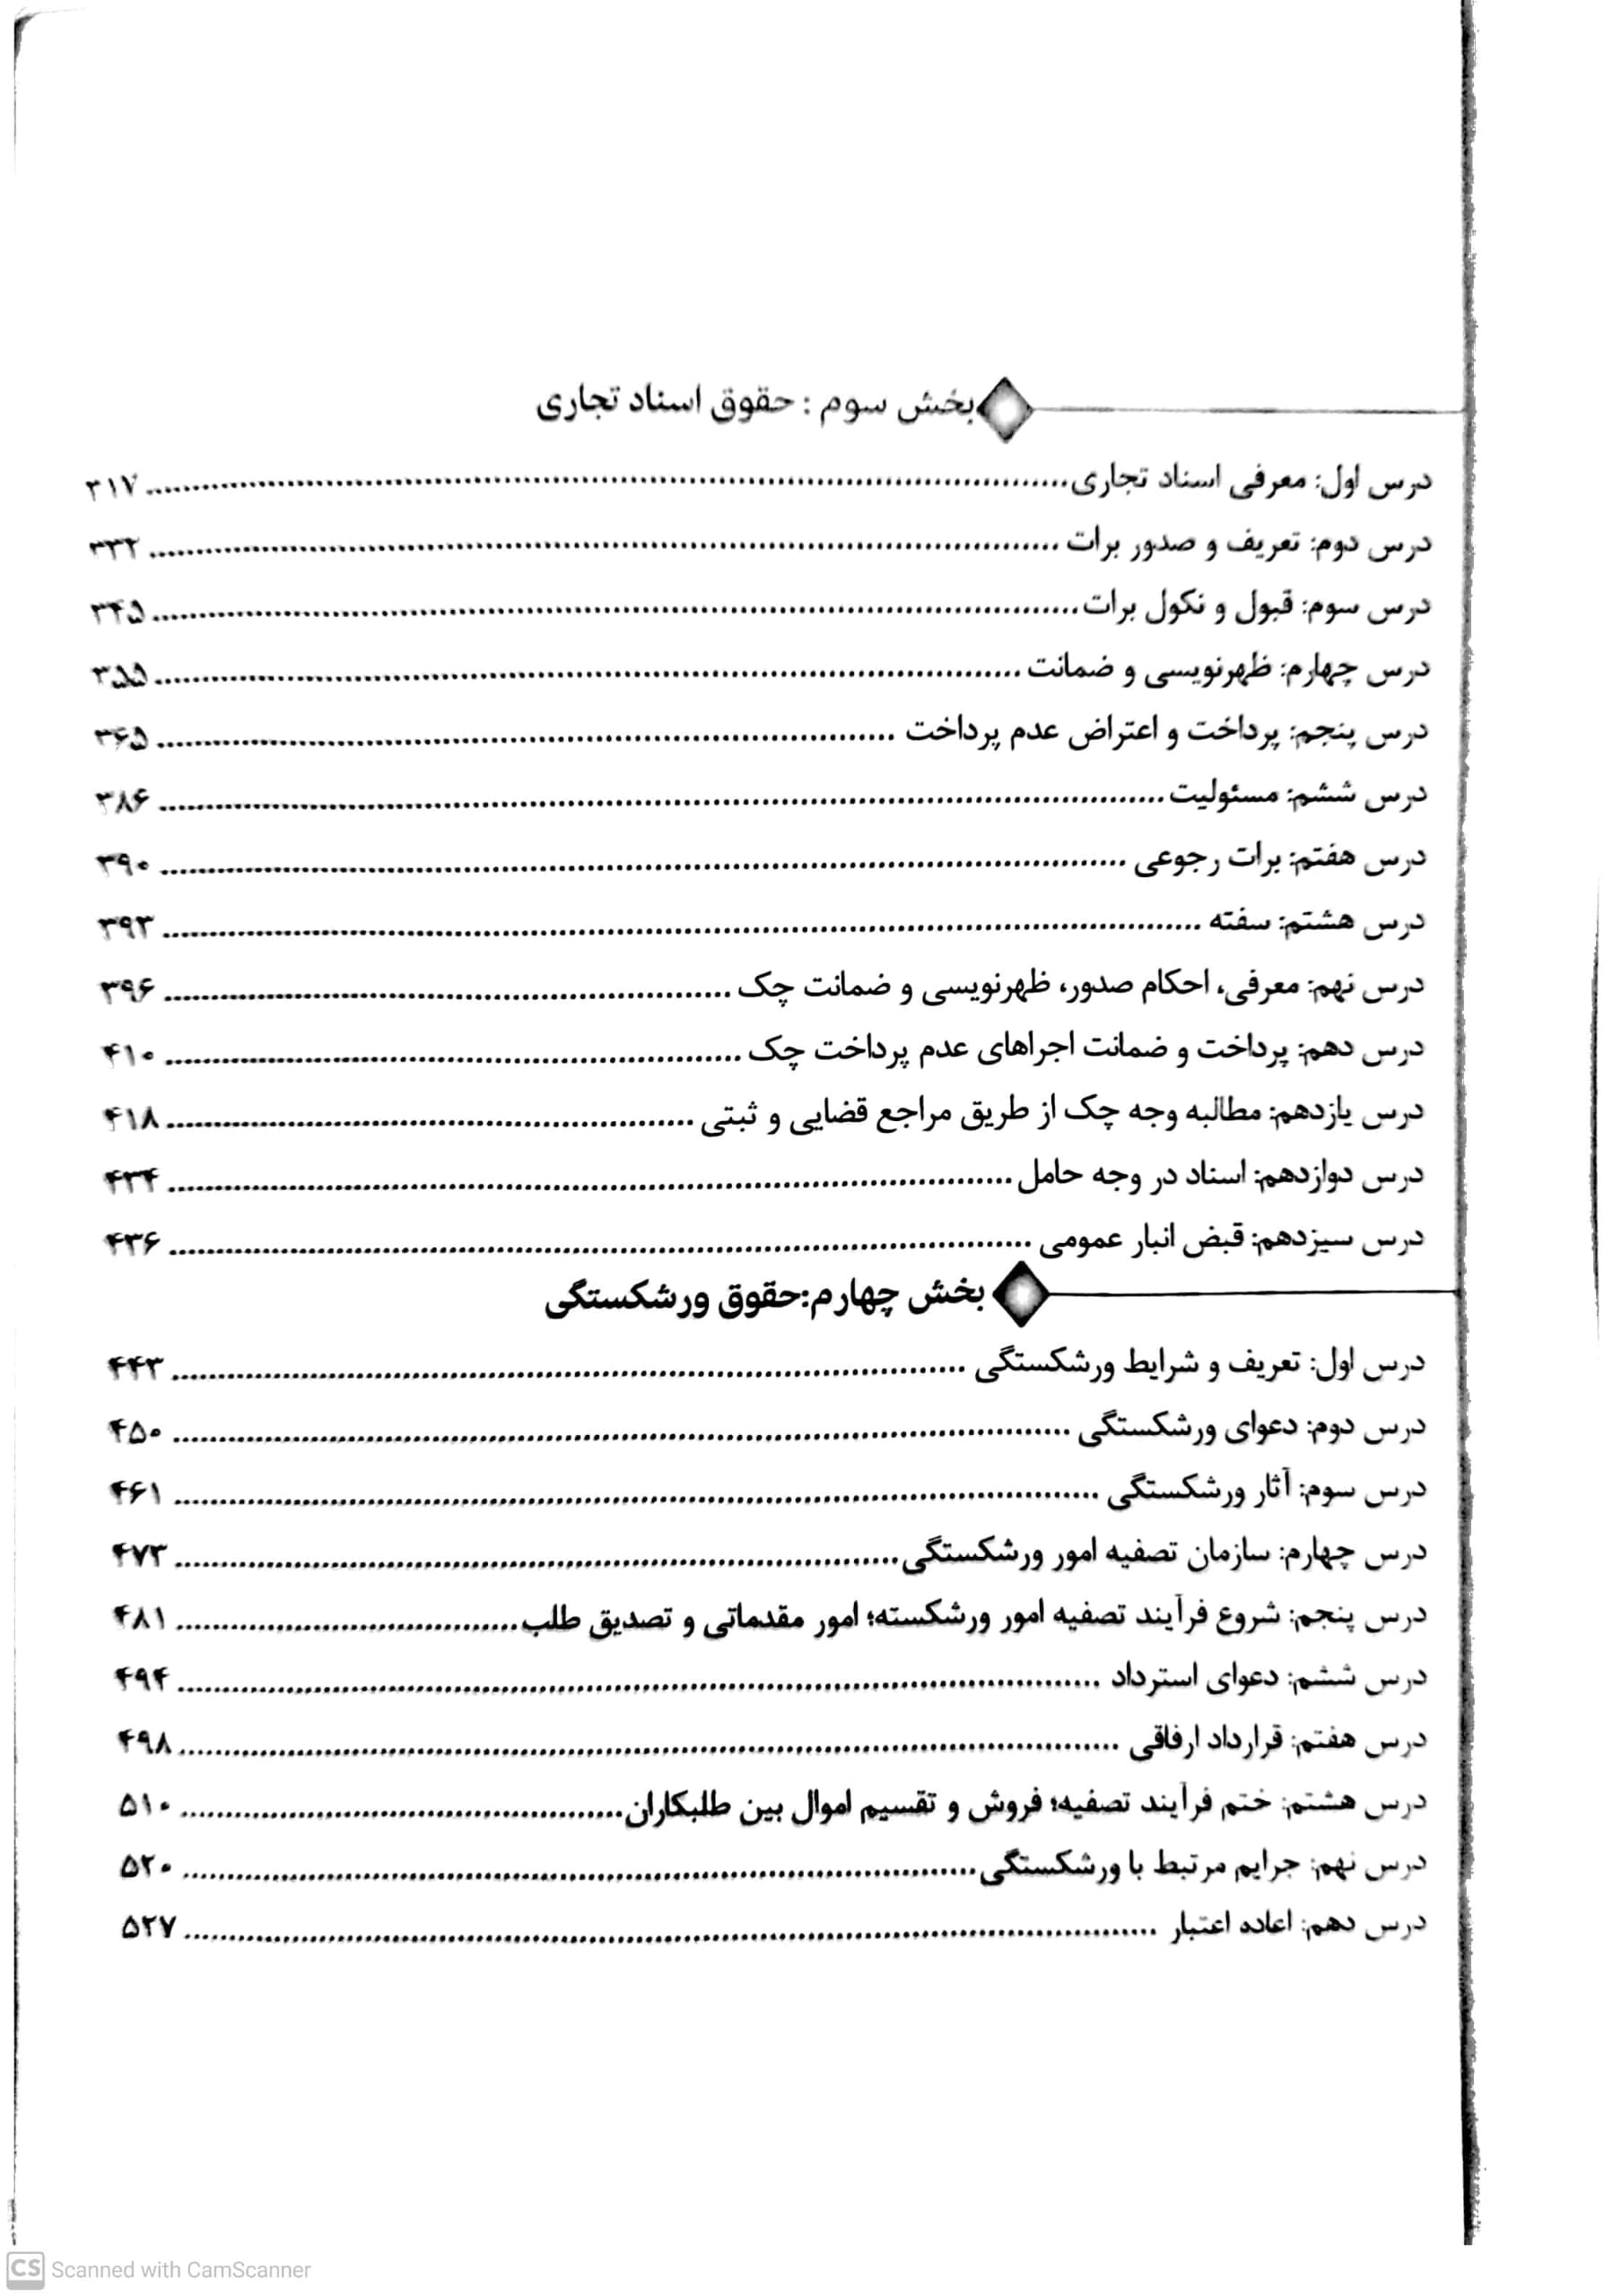 بخش سوم : حقوق اسناد تجاری
درس اول: معرفی اسناد تجاری ۳۱۷
درس دوم: تعریف و صدور برات ۳۳۲
درس سوم: قبول و نکول برات ۳۴۵
درس چهارم: ظهرنویسی و ضمانت ۳۵۵
درس پنجم: پرداخت و اعتراض عدم پرداخت ۳۶۵
درس ششم: مسئولیت ۳۸۶
درس هفتم: برات رجوعی ۳۹۰
درس هشتم: سفته ۳۹۳
درس نهم: معرفی، احکام صدور، ظهرنویسی و ضمانت چک ۳۹۶
درس دهم: پرداخت و ضمانت اجراهای عدم پرداخت چک ۴۱۰
درس یازدهم: مطالبه وجه چک از طریق مراجع قضایی و ثبتی ۴۱۸
درس دوازدهم: اسناد در وجه حامل ۴۳۴
درس سیزدهم: قبض انبار عمومی ۴۳۶
بخش چهارم:حقوق ورشکستگی
درس اول: تعریف و شرایط ورشکستگی ۴۴۳
درس دوم: دعوای ورشکستگی ۴۵۰
درس سوم: آثار ورشکستگی ۴۶۱
درس چهارم: سازمان تصفیه امور ورشکستگی ۴۷۳
درس پنجم: شروع فرآیند تصفیه امور ورشکسته؛ امور مقدماتی و تصدیق طلب ۴۸۱
درس ششم: دعوای استرداد ۴۹۴
درس هفتم: قرارداد ارفاقی ۴۹۸
درس هشتم: ختم فرآیند تصفیه؛ فروش و تقسیم اموال بین طلبکاران ۵۱۰
درس نهم: جرایم مرتبط با ورشکستگی ۵۲۰
درس دهم: اعاده اعتبار ۵۲۷
CS Scanned with CamScanner